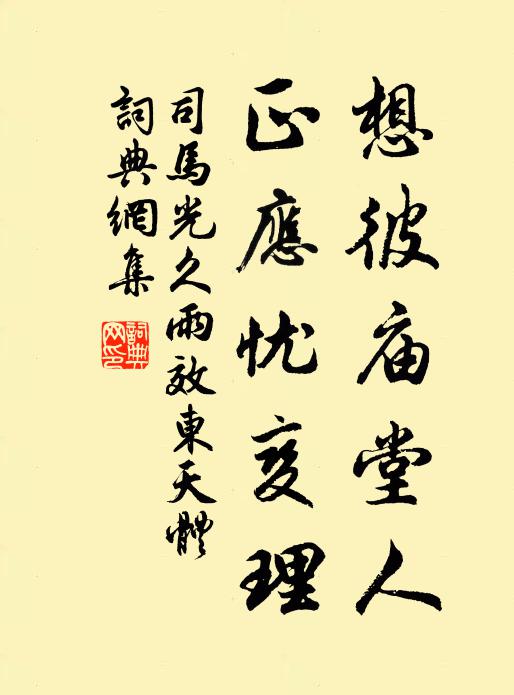 想彼庙堂人
正應忧变理
司馬光久雨效東天體
詞典網集
詞典网印